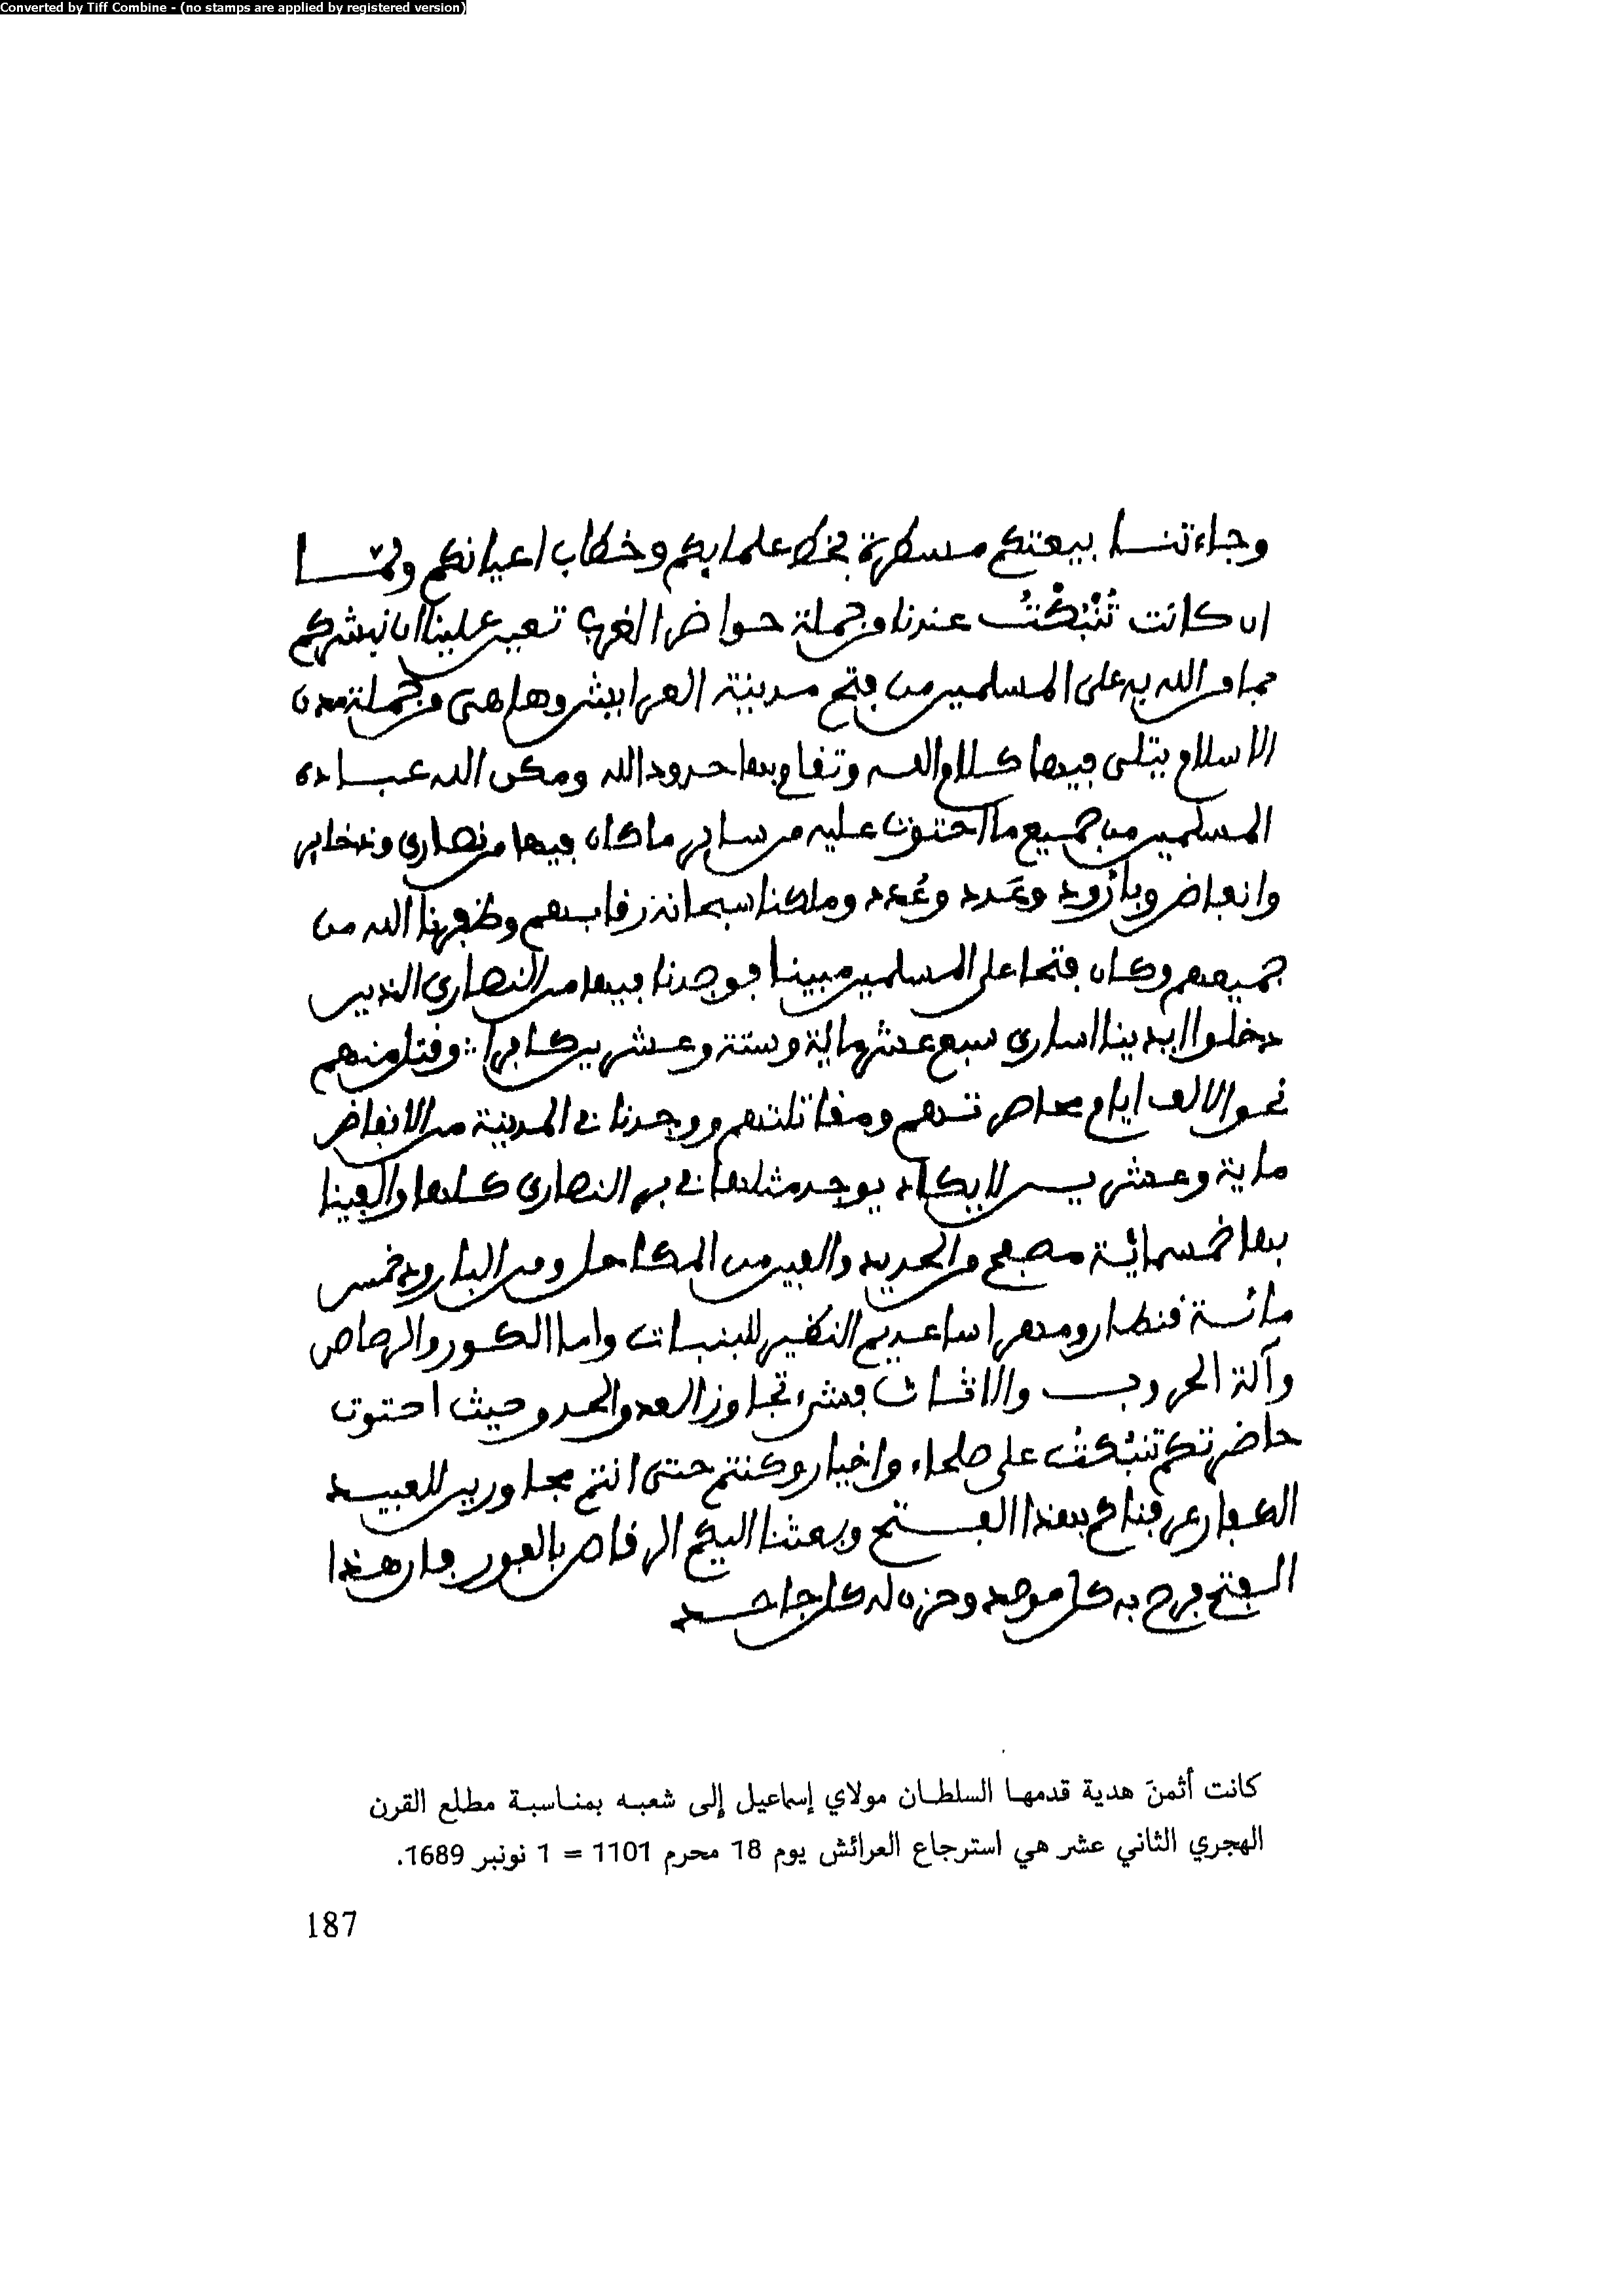 Converted by Tiff Combine - (no stamps are applied by registered version)
وجاءتنا بيعتكم مسطرة بخط علمايكم وخطاب اعيانكم ولما
ان كانت تُنْبُكْتُ عندنا من جملة حواضر الغرب تعين علينا ان نبشركم
بما من الله به على المسلمين من فتح مدينة العرايش وها هى من جملة مدن
الاسلام يتلى فيها كلام الله وتقام بها حدود الله ومكن الله عباده
المسلمين من جميع ما احتوت عليه من ساير ما كان فيها من نصارى وذخاير
وانفاض وبارُود وعَدد وعُدد وملكنا سبحانه رقابهم وظفرنا الله من
جميعهم وكان فتحا على المسلمين مبينا فوجدنا فيها من النصارى الذين
دخلوا ايدينا اسارى سبع عشرماية وستة وعشرين كافرا وقتل منهم
نحو الالف ايام محاصرتهم ومقاتلتهم ووجدنا فى المدينة من الانفاض
ماية وعشرين لا يكاد يوجد مثلها فى بر النصارى كلها والفينا
بها خمسمائة مدفع من الحديد والفين من المكاحل ومن البارود خمس
مائة قنطار ومهراسا عديم النظير للبنبات واما الكور والرصاص
وآلة الحروب والاثاث فشىء تجاوز العد والحد وحيث احتوت
حاضرتكم تنبُكتُ على صلحاء واخيار وكنتم حتى انتم مجاورين للعبيد
الكفار عرفناكم بهذا الفتح وبعثنا اليكم الرقاص بالفور فان هذا
الفتح فرح به كل موحد وحزن له كل جاحد
كانت أثمنَ هدية قدمها السلطان مولاي إسماعيل إلى شعبه بمناسبة مطلع القرن
الهجري الثاني عشر هي استرجاع العرائش يوم 18 محرم 1101 = 1 نونبر 1689.
187